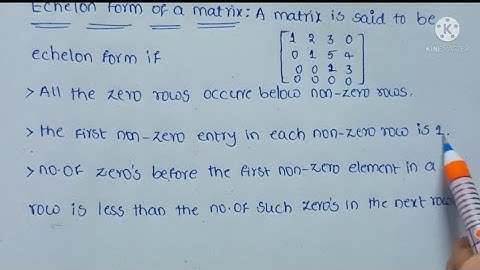 Echelon form of a matrix: A matrix is said to be
echelon form if
1 2 3 0
0 1 5 4
0 0 1 3
0 0 0 0
> All the zero rows occure below non-zero rows.
> the first non-zero entry in each non-zero row is 1.
> no.of zero's before the first non-zero element in a
row is less than the no.of such zero's in the next row
KINEMASTER